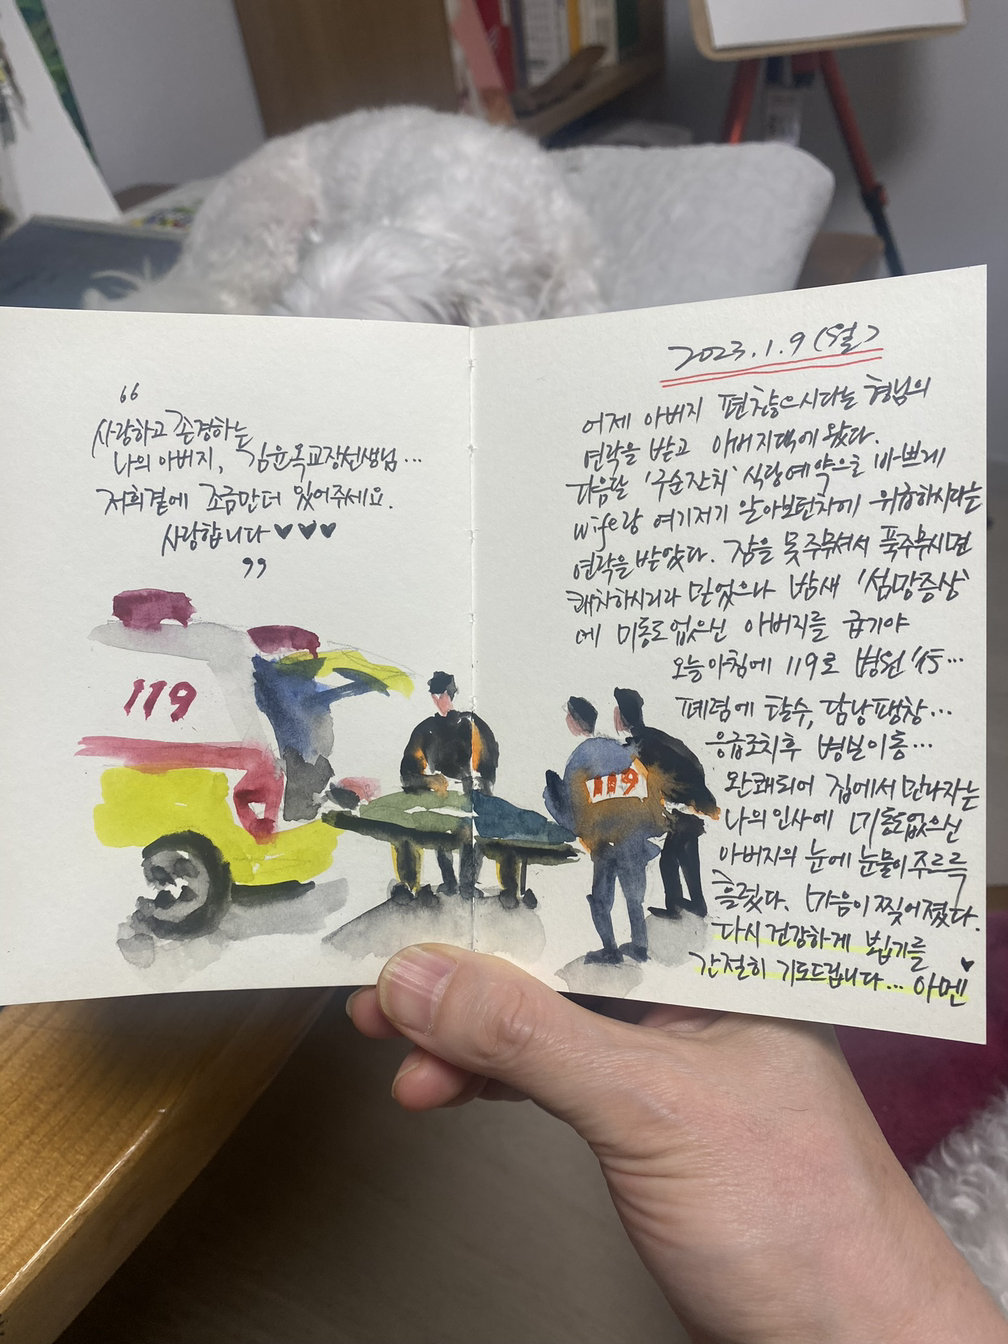 "
사랑하고 존경하는
나의 아버지, 김윤목교장선생님...
저희곁에 조금만더 있어주세요.
사랑합니다 ♥♥♥
"
119
119
2023.1.9 (월)
어제 아버지 편찮으시다는 형님의
연락을 받고 아버지댁에 왔다.
다음달 '구순잔치' 식당예약으로 바쁘게
wife랑 여기저기 알아보던차에 위급하시다는
연락을 받았다. 잠을 못주무셔서 푹주무시면
쾌차하시리라 믿었으나 밤새 '섬망증상'
에 미동도없으신 아버지를 급기야
오늘아침에 119로 병원行...
폐렴에 탈수, 담낭팽창...
응급조치후 병실이동...
완쾌되어 집에서 만나자는
나의인사에 미동도없으신
아버지의 눈에 눈물이주르륵
흘렀다. 가슴이찢어졌다.
다시건강하게 뵙기를
간절히 기도드립니다... 아멘♥